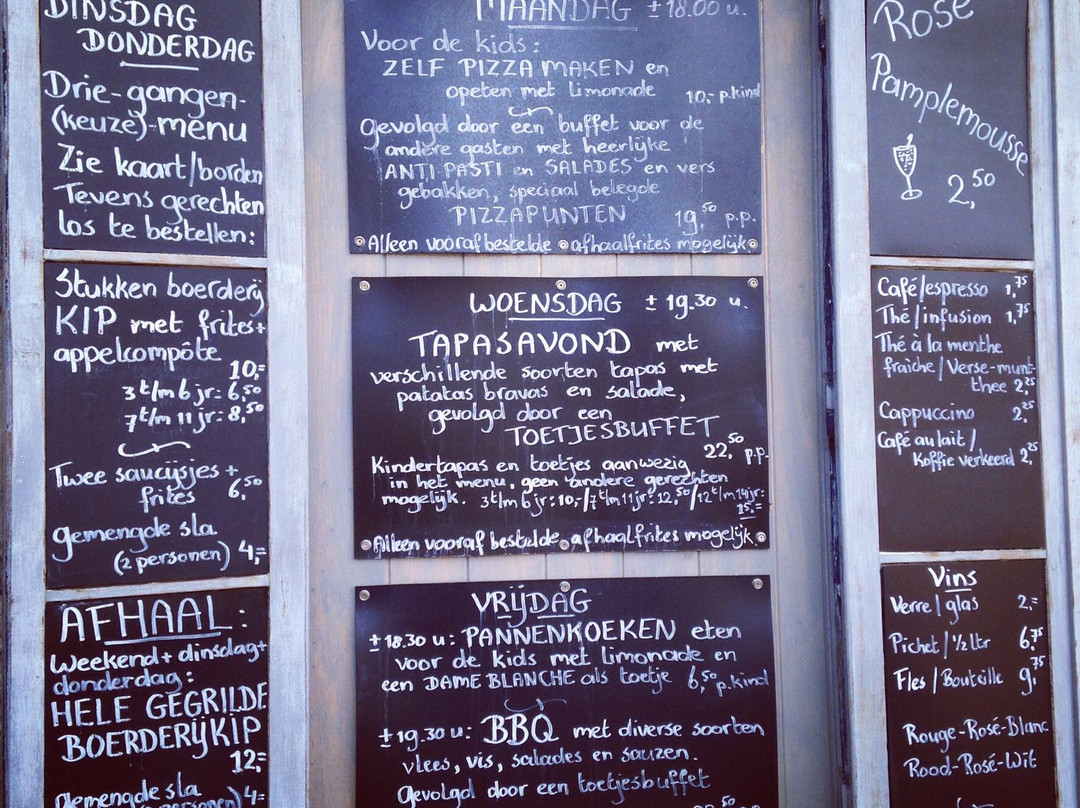 DINSDAG
DONDERDAG
Drie-gangen-
(keuze)-menu
Zie kaart/borden
Tevens gerechten
los te bestellen:
Stukken boerderij
KIP met frites+
appelcompôte
10,=
3 t/m 6 jr: 6,50
7 t/m 11 jr: 8,50
Twee saucijsjes +
frites 6,50
gemengde sla
(2 personen) 4,=
AFHAAL:
Weekend + dinsdag+
donderdag:
HELE GEGRILDE
BOERDERIJKIP
12,=
gemengde sla
(2 personen) 4=
MAANDAG ± 18.00 u.
Voor de kids:
ZELF PIZZA MAKEN en
opeten met limonade 10,- p.kind
Gevolgd door een buffet voor de
andere gasten met heerlijke
ANTI PASTI en SALADES en vers
gebakken, speciaal belegde
PIZZAPUNTEN 19,50 p.p.
Alleen vooraf bestelde afhaalfrites mogelijk
WOENSDAG ± 19.30 u.
TAPASAVOND met
verschillende soorten tapas met
patatas bravas en salade,
gevolgd door een
TOETJESBUFFET
22,50 p.p.
Kindertapas en toetjes aanwezig
in het menu, geen andere gerechten
mogelijk. 3 t/m 6 jr: 10,-/7 t/m 11 jr: 12,50/12 t/m 14 jr:
15,=
Alleen vooraf bestelde afhaalfrites mogelijk
VRIJDAG
± 18.30 u: PANNENKOEKEN eten
voor de kids met limonade en
een DAME BLANCHE als toetje 6,50 p.kind
± 19.30 u: BBQ met diverse soorten
vlees, vis, salades en sauzen.
Gevolgd door een toetjesbuffet
Rosé
Pamplemousse
2,50
Café/espresso 1,75
Thé/infusion 1,75
Thé à la menthe
fraîche/Verse-munt-
thee 2,25
Cappuccino 2,25
Café au lait/
Koffie verkeerd 2,25
Vins
Verre/glas 2,=
Pichet/½ ltr 6,75
Fles/Bouteille 9,75
Rouge-Rosé-Blanc
Rood-Rosé-Wit